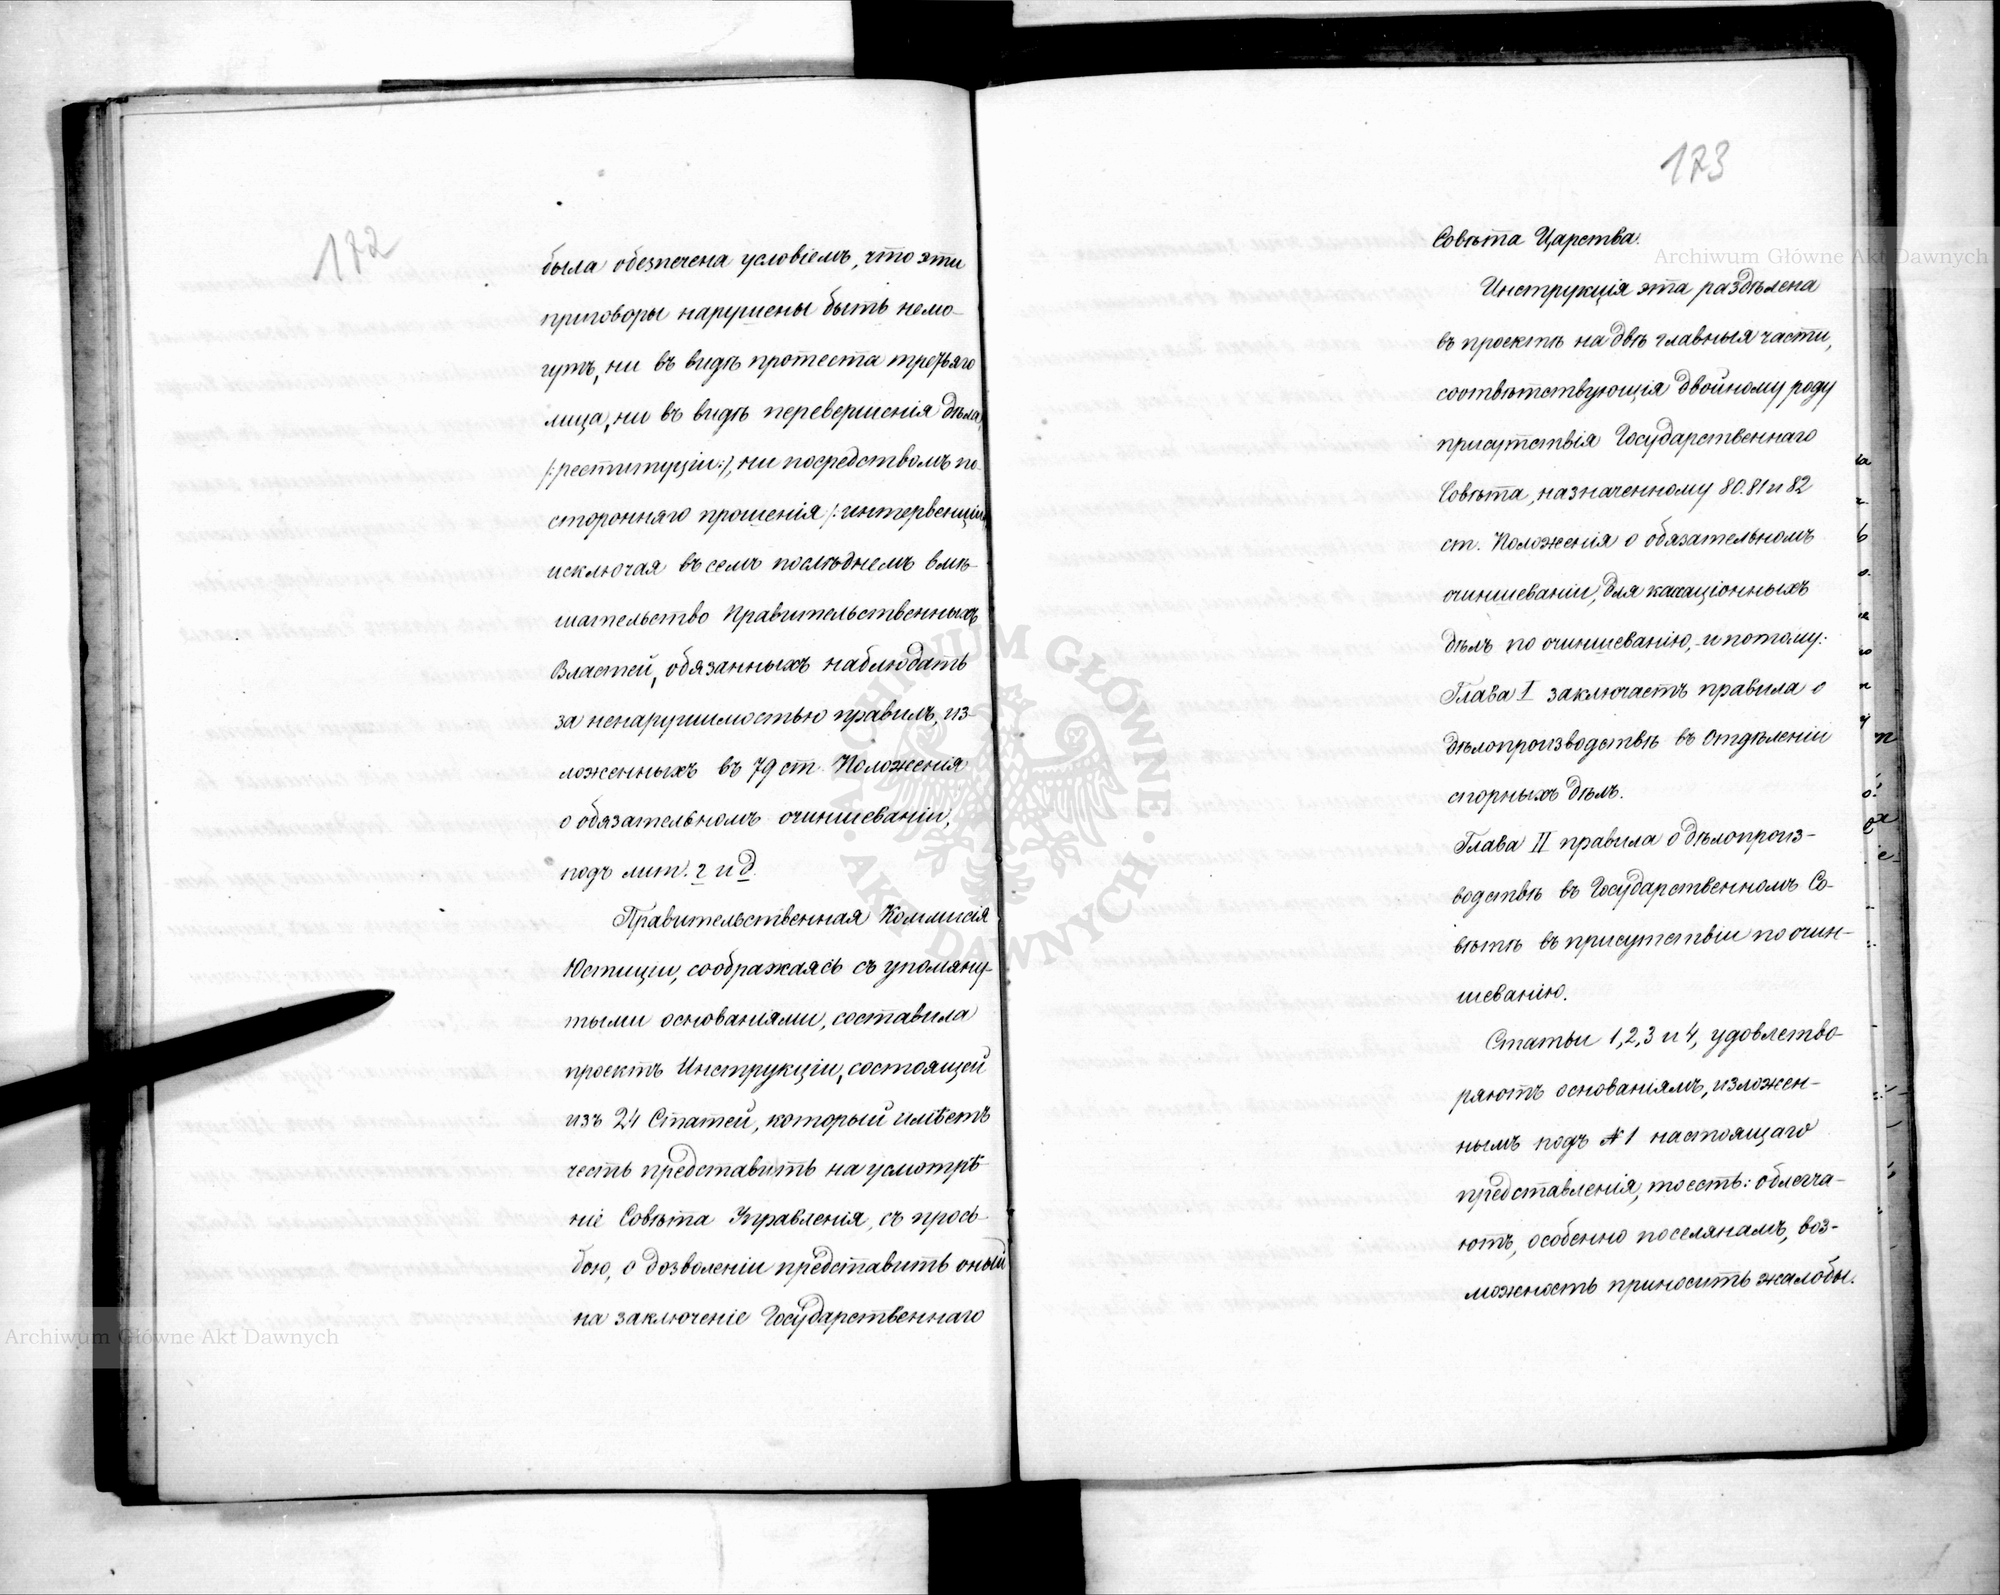 172
была обезпечена условіемъ, что эти
приговоры нарушены быть немо-
гутъ, ни въ видѣ протеста третьяго
лица, ни въ видѣ перевершенія дѣла,
/:реституціи:/, ни посредствомъ по-
сторонняго прошенія /:интервенціи
исключая въ семъ послѣднемъ вмѣ-
шательство Правительственныхъ
Властей, обязанныхъ наблюдать
за ненарушимостью правилъ, из-
ложенныхъ въ 79 ст. Положенія
о обязательномъ очиншеваніи,
подъ лит. г и д.
Правительственная Коммисія
Юстиціи, соображаясь съ упомяну-
тыми основаніями, составила
проектъ Инструкціи, состоящей
изъ 24 Статей, который имѣетъ
честь представить на усмотрѣ-
ніе Совѣта Управленія, съ прось-
бою, о дозволеніи представить оный
на заключеніе Государственнаго
173
Совѣта Царства.
Инструкція эта раздѣлена
въ проектѣ на двѣ главныя части,
соотвѣтствующія двойному роду
присутствія Государственнаго
Совѣта, назначенному 80. 81 и 82
ст. Положенія о обязательномъ
очиншеваніи, для кассаціонныхъ
дѣлъ по очиншеванію, и потому:
Глава I заключаетъ правила о
дѣлопроизводствѣ въ Отдѣленіи
спорныхъ дѣлъ.
Глава II правила о дѣлопроиз-
водствѣ въ Государственномъ Со-
вѣтѣ въ присутствіи по очин-
шеванію.
Статьи 1, 2, 3 и 4, удовлетво-
ряютъ основаніямъ, изложен-
нымъ подъ № 1 настоящаго
представленія, то есть: облегча-
ютъ, особенно поселянамъ, воз-
можность приносить жалобы.
Archiwum Główne Akt Dawnych
Archiwum Główne Akt Dawnych
ARCHIWUM GŁÓWNE · AKT DAWNYCH ·